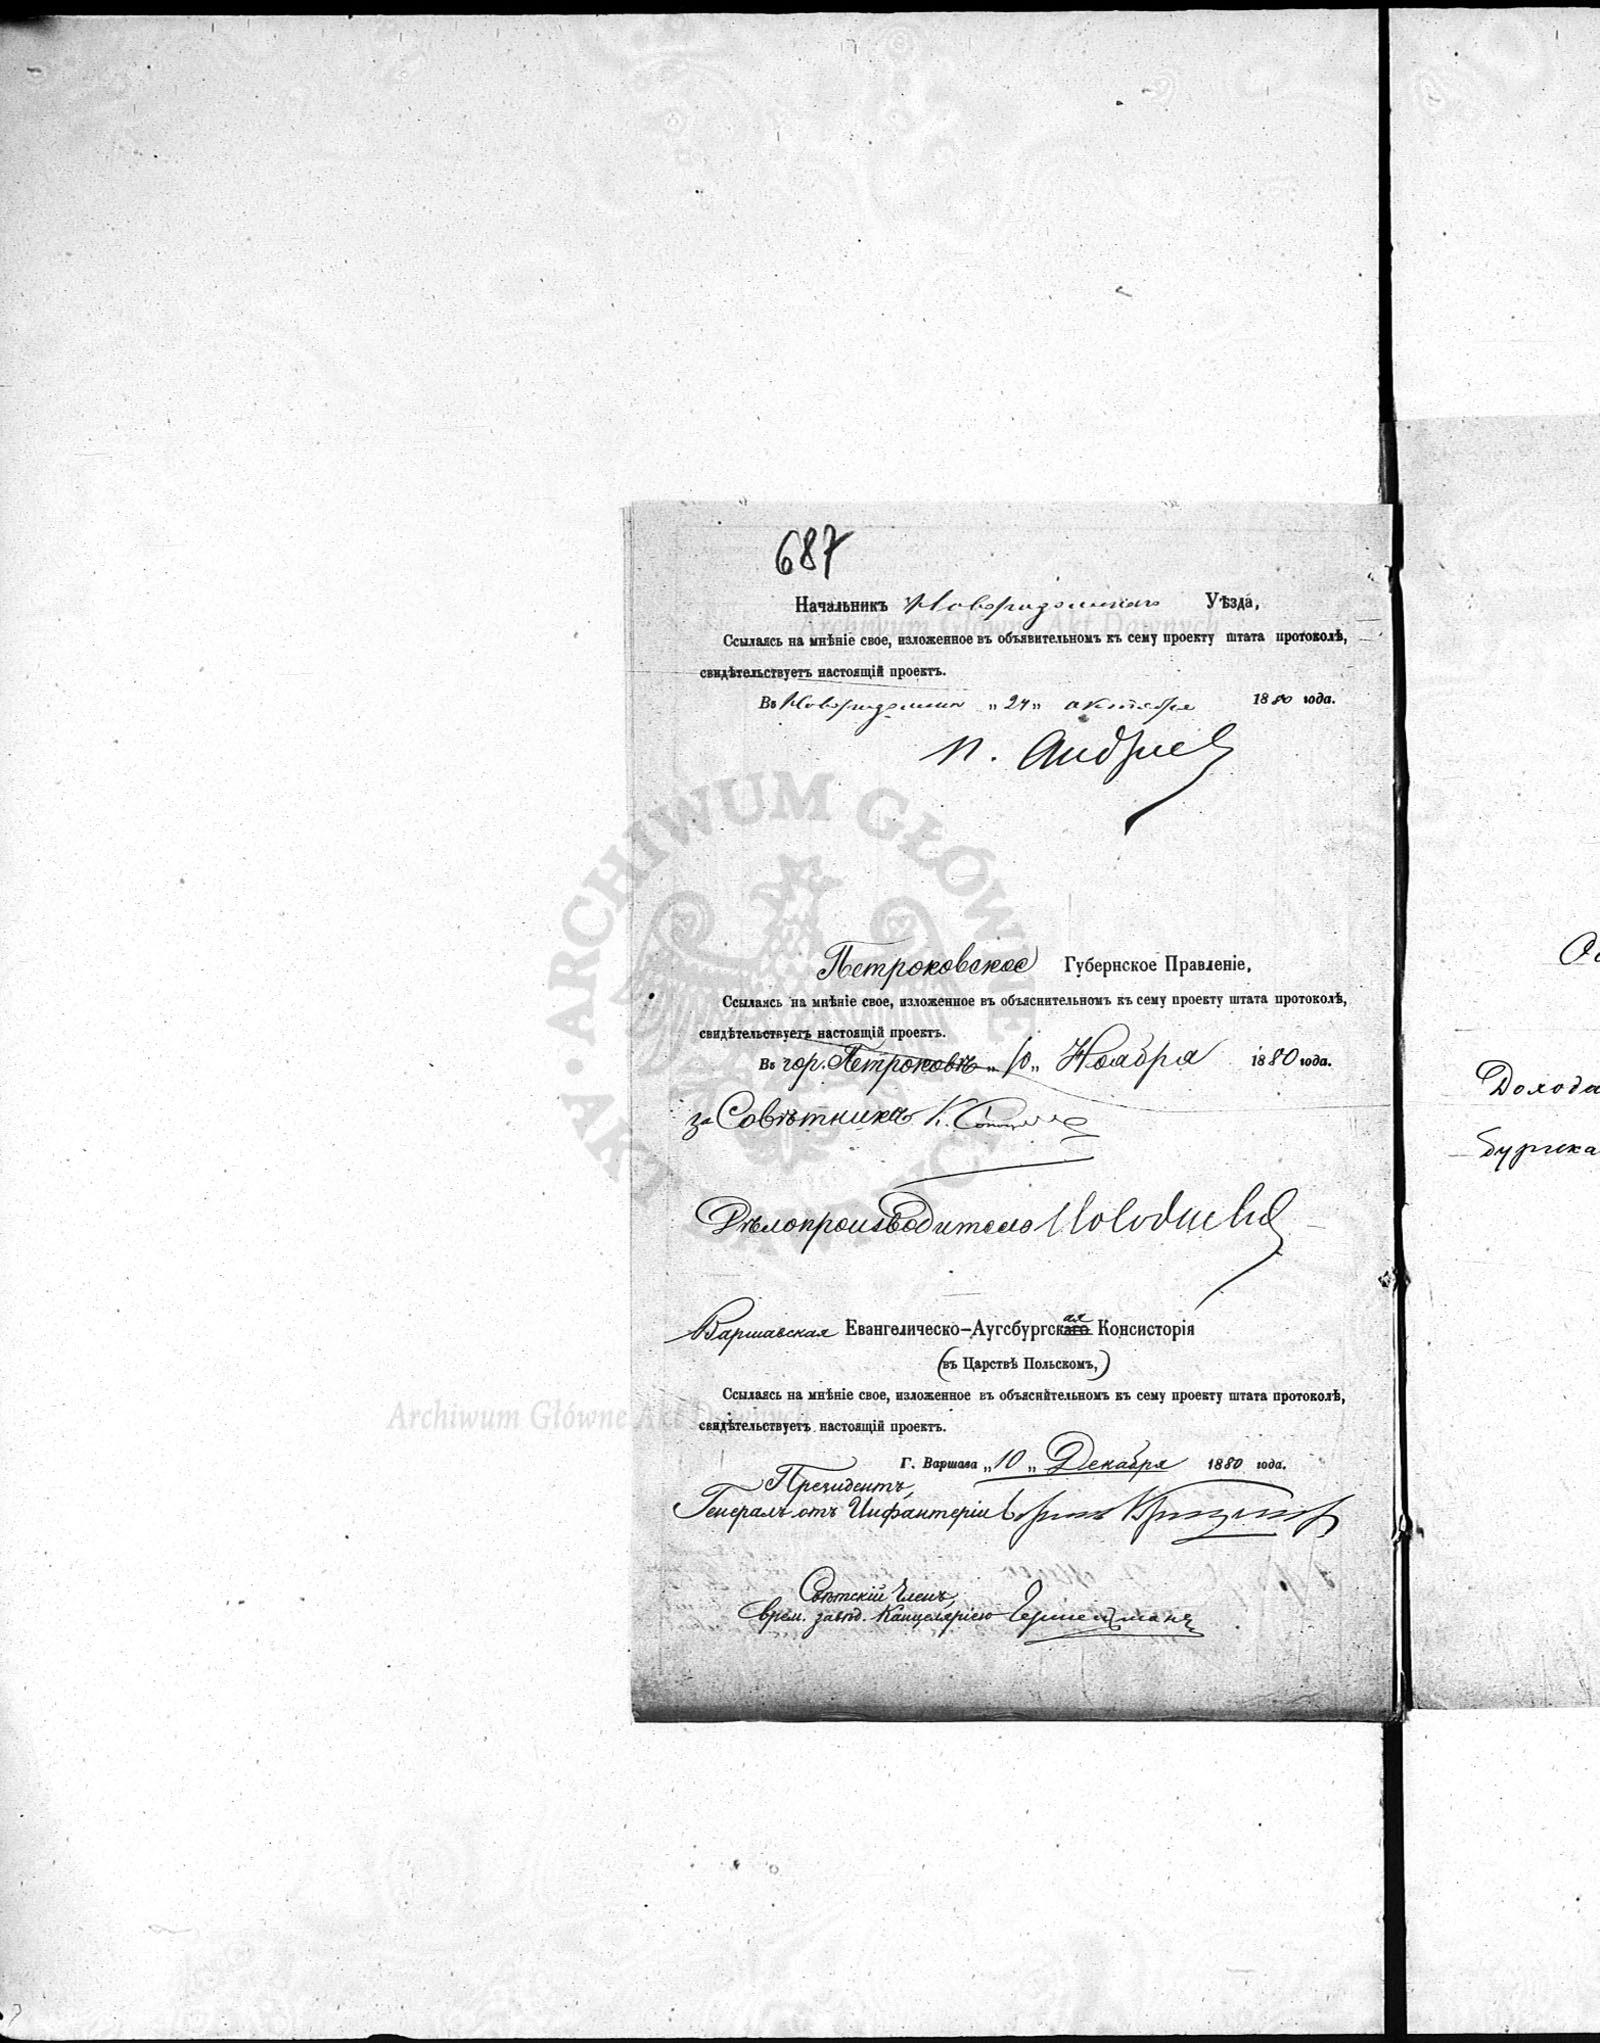 687
Начальникъ Новорадомскаго Уѣзда,
Ссылаясь на мнѣніе свое, изложенное въ объявительномъ къ сему проекту штата протоколѣ,
свидѣтельствуетъ настоящій проектъ.
Въ Новорадомскѣ „24„ октября 1880 года.
Петроковское Губернское Правленіе,
Ссылаясь на мнѣніе свое, изложенное въ объяснительномъ къ сему проекту штата протоколѣ,
свидѣтельствуетъ настоящій проектъ.
Въ гор. Петроковѣ „10„ Ноября 1880 года.
за Совѣтника К.
Дѣлопроизводитель
Варшавская Евангелическо-Аугсбургскаго ая Консисторія
(въ Царствѣ Польскомъ,)
Ссылаясь на мнѣніе свое, изложенное въ объяснительномъ къ сему проекту штата протоколѣ,
свидѣтельствуетъ настоящій проектъ.
Г. Варшава „10„ Декабря 1880 года.
Президентъ,
Генералъ отъ Инфантеріи
Свѣтскій Членъ,
врем. завѣд. Канцеляріею
Дохода
бургска
ARCHIWUM GŁÓWNE AKT DAWNYCH
Archiwum Główne Akt Dawnych
Archiwum Główne Akt Dawnych